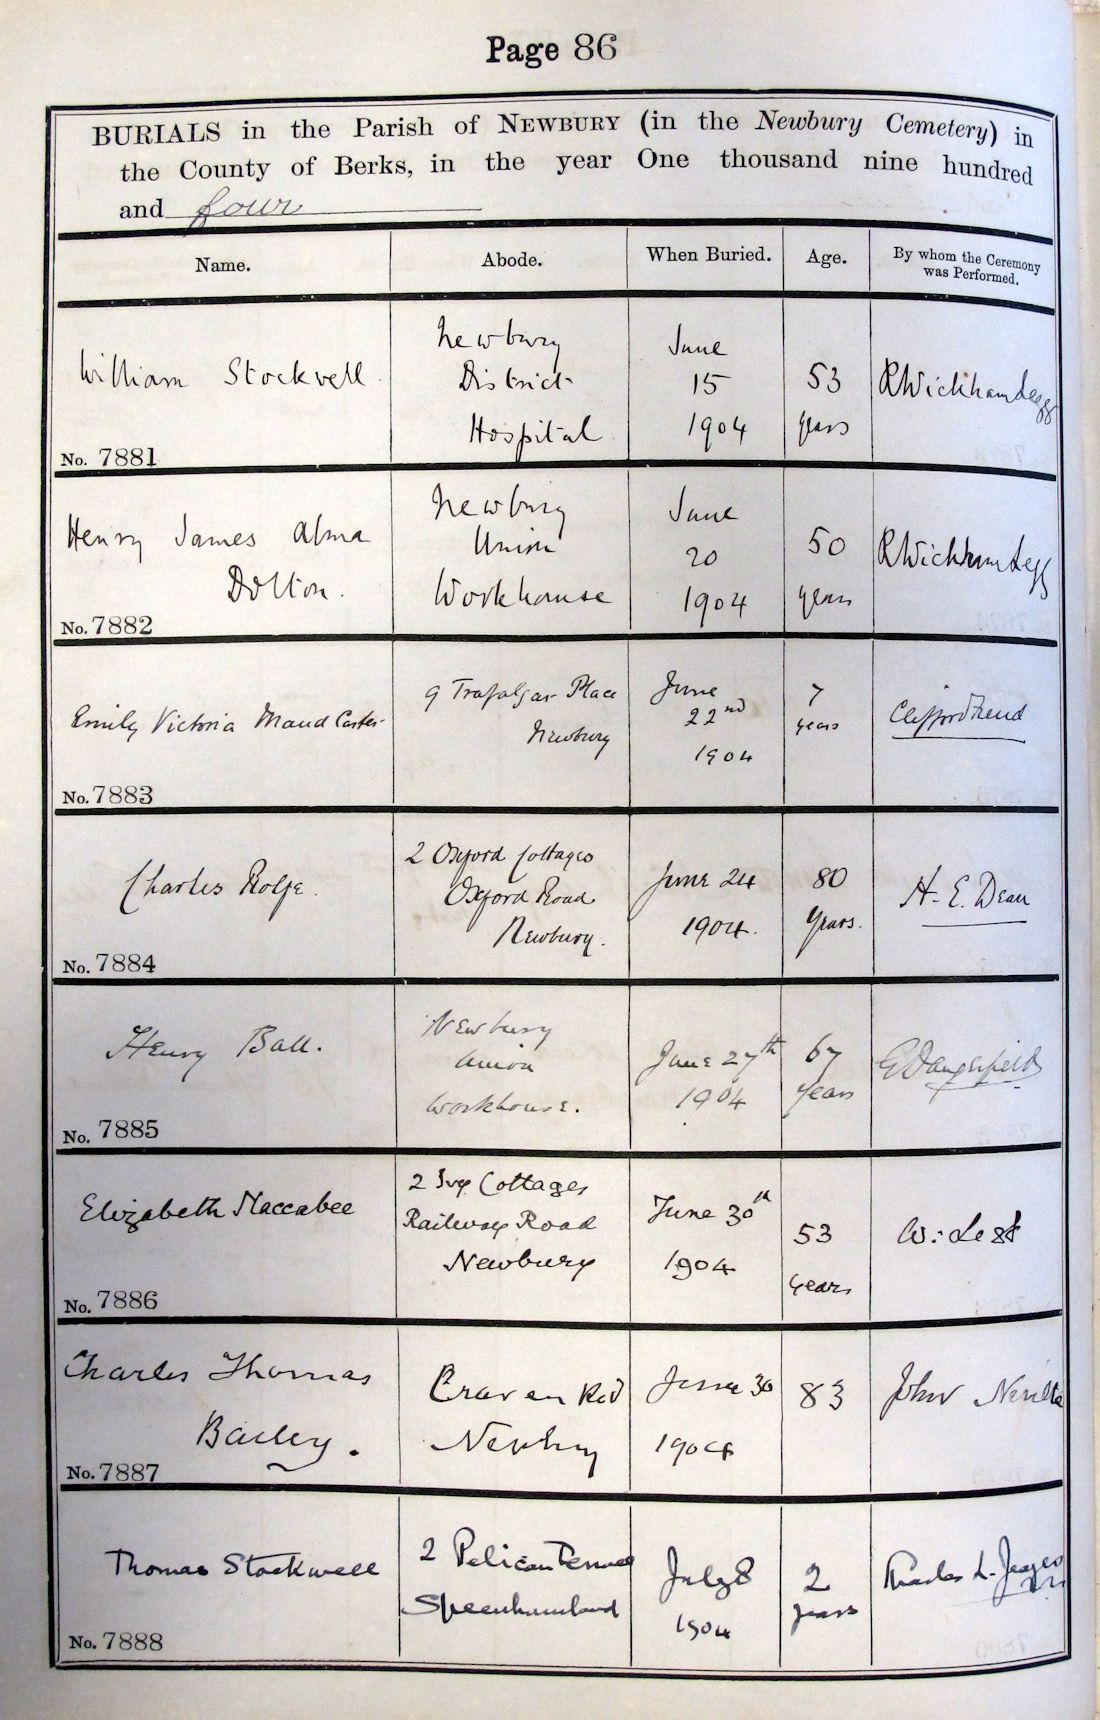 Page 86
BURIALS in the Parish of NEWBURY (in the Newbury Cemetery) in
the County of Berks, in the year One thousand nine hundred
and four
Name. Abode. When Buried. Age. By whom the Ceremony
was Performed.
Newbury June
William Stockwell District 15 53 RWickham Legg
Hospital 1904 years
No. 7881
Newbury June
Henry James Alma Union 20 50 RWickham Legg
Dolton. Workhouse 1904 years
No. 7882
9 Trafalgar Place June 7
Emily Victoria Maud Carter Newbury 22nd years Clifford
1904
No. 7883
2 Oxford Cottages
Charles Rolfe. Oxford Road June 24 80 H. E. Dean
Newbury. 1904. Years.
No. 7884
Newbury
Henry Ball. Union June 27th 67
Workhouse. 1904 years
No. 7885
2 Ivy Cottages
Elizabeth Maccabee Railway Road June 30th 53 W:
Newbury 1904 years
No. 7886
Charles Thomas Craven Rd June 30 83 John Neville
Bailey. Newbury 1904
No. 7887
Thomas Stockwell 2 Pelican Terrace July 8 2 Charles L.
Speenhamland 1904 years
No. 7888